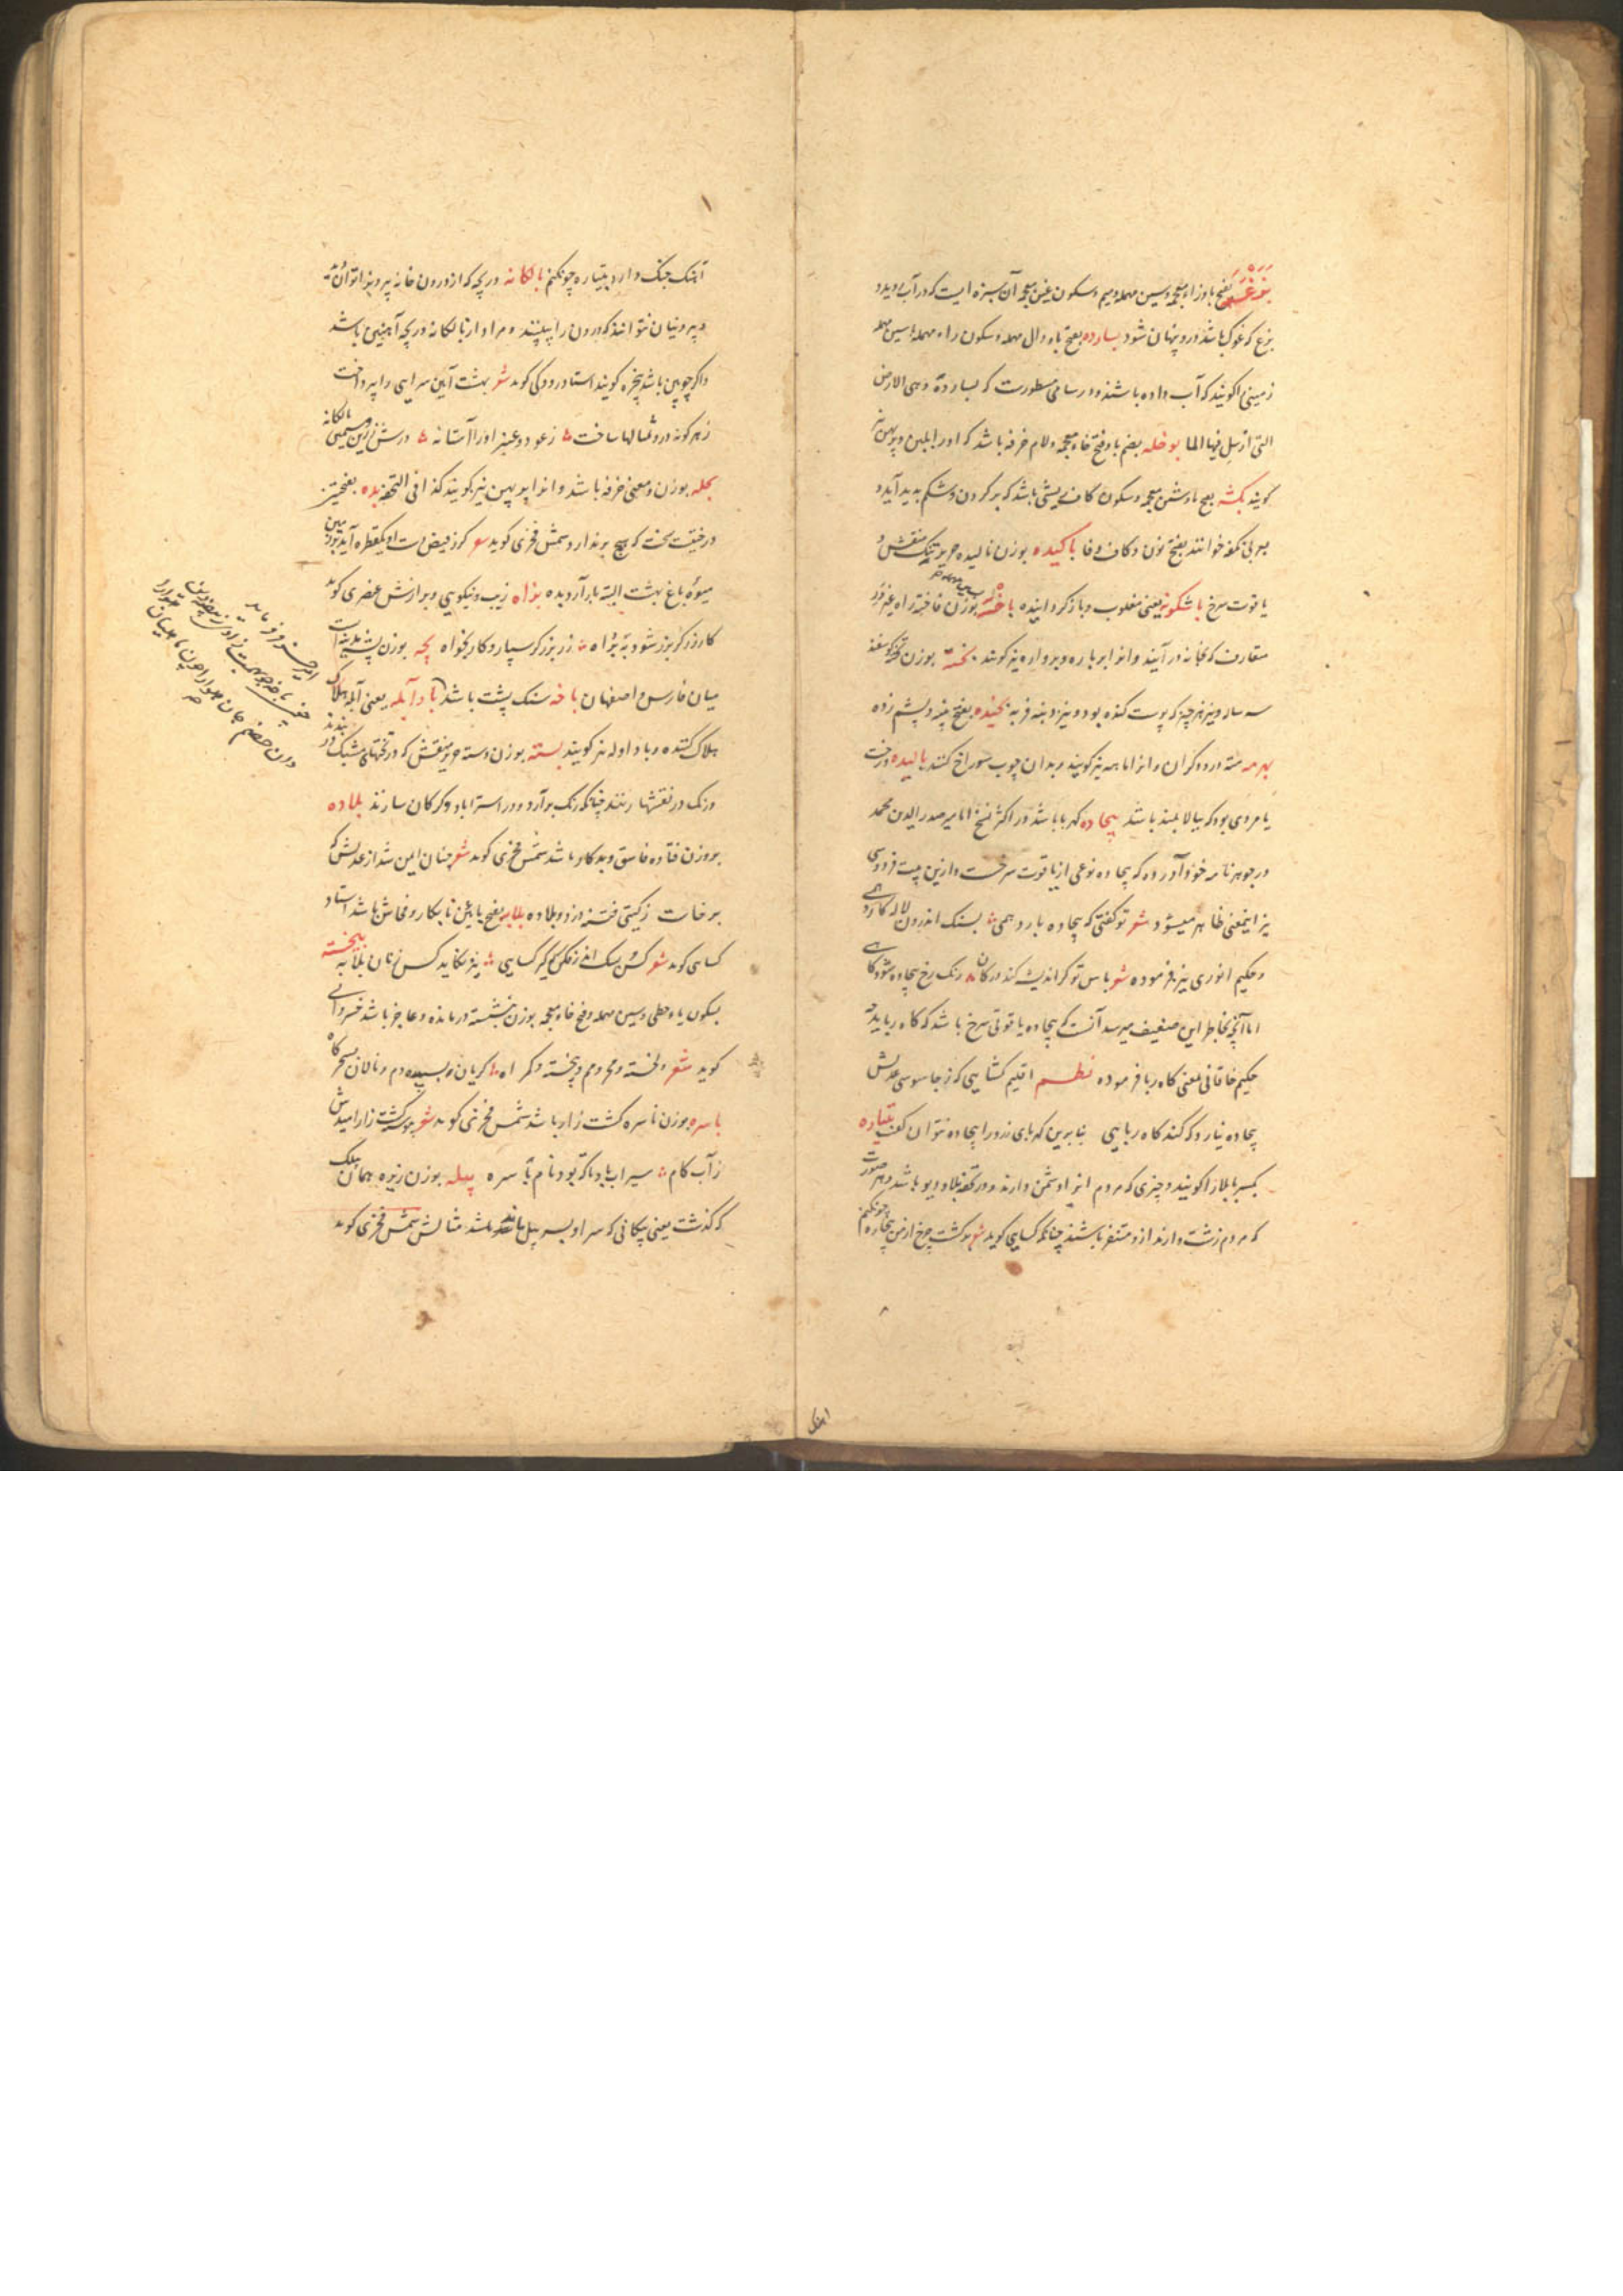 بزغسمه بفتح باوزاء معجمه وسین مهمله ومیم وسکون غین معجمه آن سبزه ایست که در آب روید و
بزغ که غوک باشد درو پنهان شود بسارده بفتح باء ودال مهمله وسکون راء مهمله
زمینی را کویند که آب داده باشند ودر سامی مسطورست که بسارده وهی الارض
التی ارسل فیها الما بوخله بضم با وفتح خاء معجمه ولام خرفه باشد که اورا بلبن وپرپهن نیز
کویند بکشه بفتح با وشین معجمه وسکون کاف ریشی باشد که بر کردن وشکم پدید آید و
بعربی نکفه خوانند بفتح نون وکاف وفا باکیده بوزن نالیده حریر تنک منقش و
یاقوت سرخ باشکونه یعنی مقلوب وباز کردانیده باخته بوزن فاخته راه غیر
متعارف که بخانه در آیند وانرا برباره وبرواره نیز کویند بخته بوزن کوسفند
سه ساله ونیز هر چیز که پوست کنده بود ونیز دنبه فربه بخیده بفتح پنبه وپشم زده
بهرمه مته درودکران وانرا ماهه نیز کویند وبدان چوب سوراخ کنند بالیده درخت
یا مردی بود که ببالا بلند باشد بیجاده کهربا باشد در اکثر نسخ اما میر صدر الدین محمد
در جوهرنامه خود آورده که بیجاده نوعی از یاقوت سرخست وازین بیت فردوسی
نیز اینمعنی ظاهر میشود شعر تو کفتی که بیجاده بارد همی بسنک اندرون لاله کارد همی
وحکیم انوری نیز فرموده شعر باس تو کر اندیشه کند در کان رنک رخ بیجاده شود کاهی
اما آنچه بخاطر این ضعیف میرسد آنست که بیجاده یاقوتی سرخ باشد که کاه رباید چه
حکیم خاقانی بمعنی کاه ربا فرموده نظم اقلیم کشایی که ز جاسوسی عدلش
بیجاده نیارد که کند کاه ربایی بنابرین کهربای زرد را بیجاده نتوان کفت بتیاره
بکسر با بلا را کویند وچیزی که مردم انرا دشمن دارند ودر تحفه بلا ودیو باشد وهر صورت
که مردم زشت دارند از ومتنفر باشند چنانکه کسایی کوید شعر برکشت چرخ از من بیچاره چونکنم
اهنک
آهنک جنک دارد بتیاره چونکنم بالکانه دریچه که از درون خانه بیرونرا توان دید
وبیرونیان نتوانند که درون را ببینند ومراد از بالکانه دریچه آهنین باشد
واکر چوبین باشد پنجره کویند استاد رودکی کوید شعر بهشت آیین سرایی را بپرداخت
زهر کونه درو تمثالها ساخت ز عود وعنبر اورا آستانه درش زرین وسیمین بالکانه
بخله بوزن ومعنی خرفه باشد وانرا پرپهن نیز کویند کذا فی التحفه بده بفتحتین
درختیست سخت که هیچ بر ندارد شمس فخری کوید شعر کر ز فیض دست او یکقطره آید بر زمین
میوه باغ بهشت البته بار آرد بده بزاه زیب ونیکویی وبرازش عنصری کوید
کار زرکر بزر شود به بزاه زر بزرکر سپار وکار بخواه پجه بوزن پشه
میان فارس واصفهان باخه سنک پشت باشد بادآبله یعنی آبله هلاک
هلاک کننده وباد اوله نیز کویند بسته بوزن دسته حریر منقش که در تختهای مشبک بندند و
ورنک در نقشها ریزند چنانکه رنک بر آرد ودر استراباد وکرکان سازند بلاده
بروزن فتاده فاسق وبدکار باشد شمس فخری کوید شعر چنان ایمن شد از عدلش که
برخاست ز کیتی فتنه ودزد وبلاده بلایه بفتح یا یعنی نابکار وفحاش باشد استاد
بیخسته
بسکون یاء حطی وسین مهمله وفتح خاء معجمه بوزن ننشسته درمانده وعاجز باشد خسروانی
کوید شعر دلخسته ومحرومم وبیخسته وکمراه کریان بسپیده دم ونالان بسحرکاه
باسره بوزن ناسره کشت زار باشد شمس فخری کوید شعر کشت زار امیدش
ز آب کام سیراب باد تا که بود نام باسره بیله بوزن زیره همان بیلک
که کذشت یعنی پیکانی که سر او بسر بیل ماند مثالش شمس فخری کوید